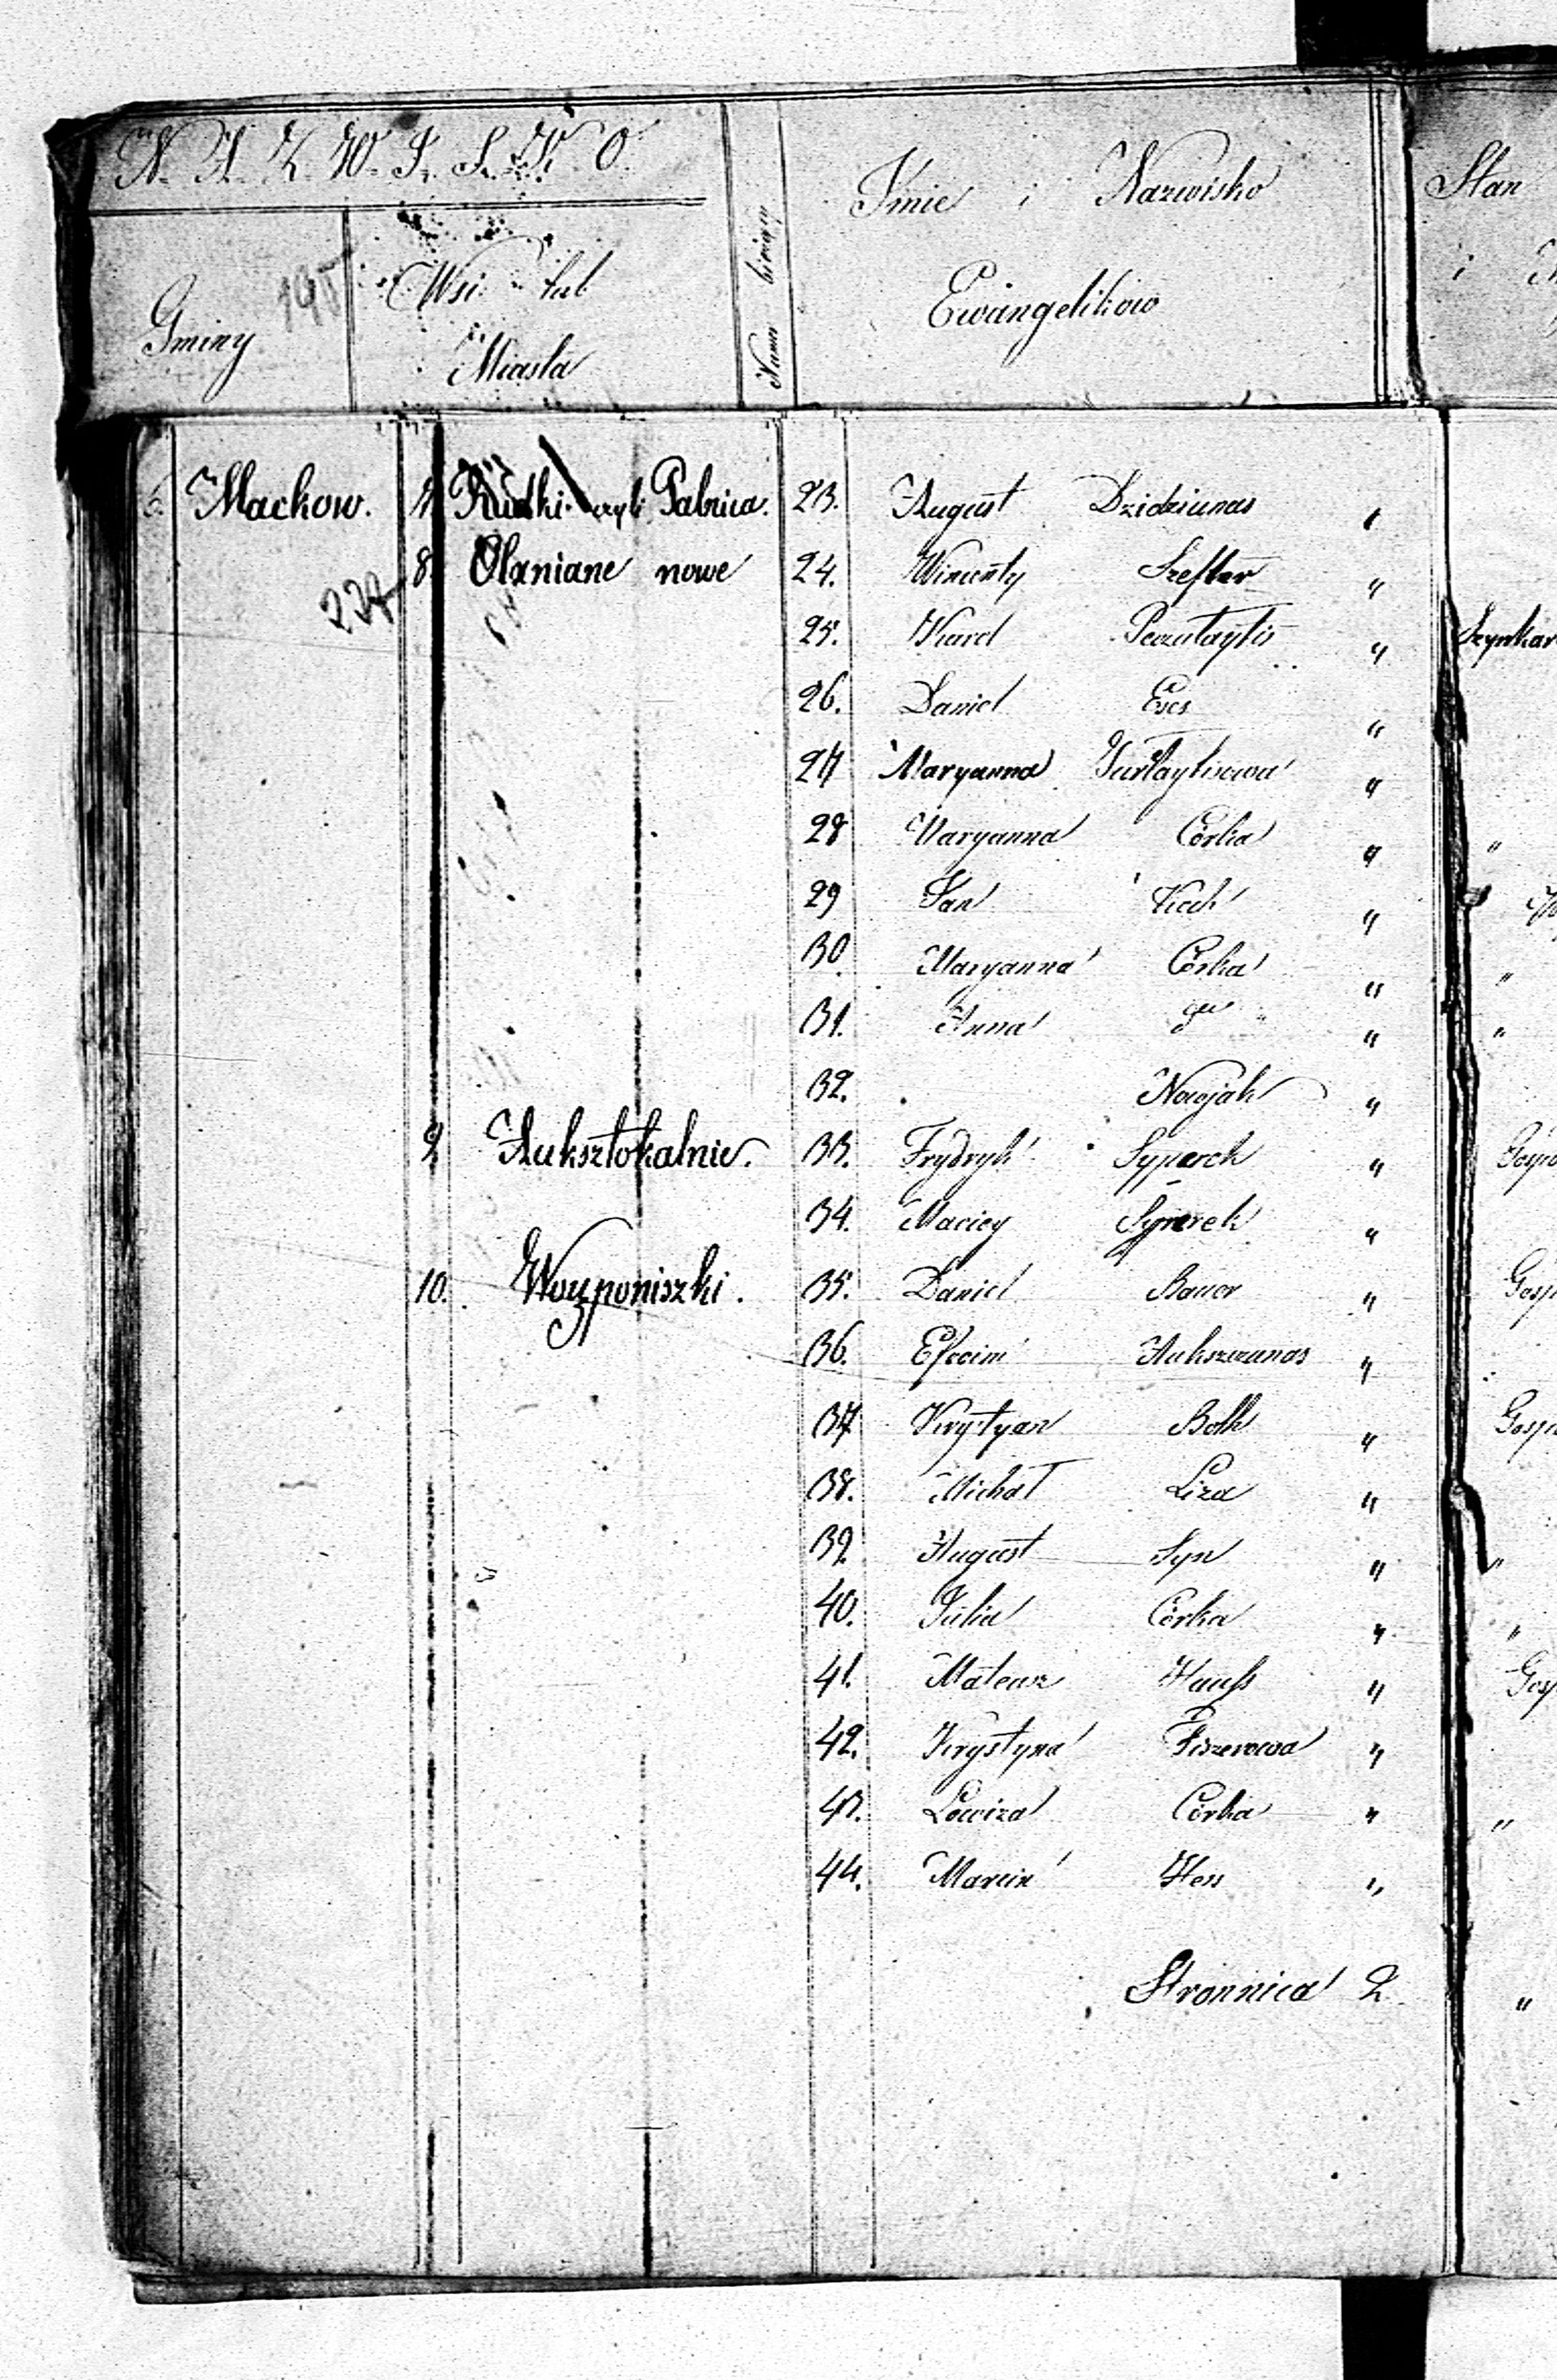 N. A. Z. W. I. S. K. O.
Gminy
Wsi lub
Miasta
Numer bieżący
Jmie i Nazwisko
Ewangelikow
Stan
i
195
6. Mackow. 7. Rudki czyli 23. August Dzidziunas "
227 8. Olxniane nowe 24. Wincenty Szefler "
25. Karol "
Szynkar
26. Daniel "
27 Maryanna Gurtaytisowa "
28 Maryanna Corka " "
29 Jan Koch "
30. Maryanna Corka " "
31. Anna " "
32. Nowojah "
9. Auksztokalnie. 33. Frydryk Syperek " Gospo
34. Maciey Syperek "
10. Woyponiszki. 35. Daniel Bauer " Gosp
36. Efroim Aukszczunas "
37 Krystyan Both " Gosp
38. Michał Liza "
39. August Syn " "
40. Julia Corka " "
41. Mateusz Hauss " Gosp
42. Krystyna Fiszerowa "
43. Lowiza Corka " "
44. Marcin Hess "
Stronnica 2 "